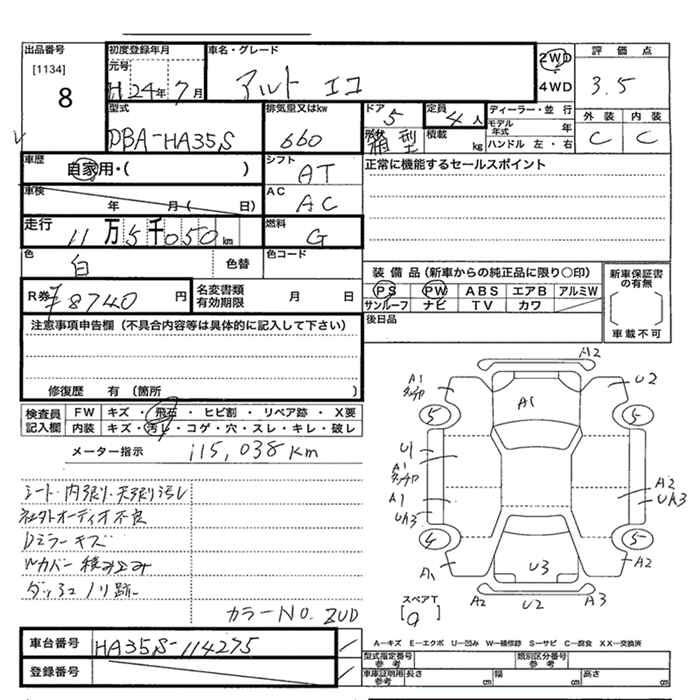 出品番号
[1134]
8
初度登録年月
元号
H 24年 7月
車名・グレード
アルト エコ
2WD
4WD
評価点
3.5
外装 内装
C C
型式
DBA-HA35S
排気量又はkw
660
ドア
5
形状
箱型
定員
4人
積載
kg
ディーラー・並行
モデル年式
年
ハンドル 左・右
車歴
自家用・( )
シフト
AT
正常に機能するセールスポイント
車検
年 月( 日)
AC
AC
走行
11万5千050km
燃料
G
色
白
色替
色コード
R券
¥8740円
名変書類有効期限
月 日
装備品(新車からの純正品に限り○印)
PS PW ABS エアB アルミW
サンルーフ ナビ TV カワ
新車保証書の有無
[ ]
車載不可
後日品
注意事項申告欄(不具合内容等は具体的に記入して下さい)
修復歴 有(箇所 )
検査員記入欄
FW キズ・飛石・ヒビ割・リペア跡・X要
内装 キズ・汚レ・コゲ・穴・スレ・キレ・破レ
メーター指示 115,038km
シート・内張り・天張り汚レ
社外オーディオ不良
Dミラーキズ
Wカバー積み込み
ダッシュノリ跡
カラーNO. ZUD
A2
A1
U2
A1
5
5
U1
A1
A1
UA3
A2
UA3
4
5
A1
U3
A2
A2
U2
A3
スペアT
[ ]
A—キズ E—エクボ U—凹み W—補修跡 S—サビ C—腐食 XX—交換済
車台番号
HA35S-114275
登録番号
型式指定番号
参考
類別区分番号
参考
車庫証明用
参考
長さ cm
幅 cm
高さ cm